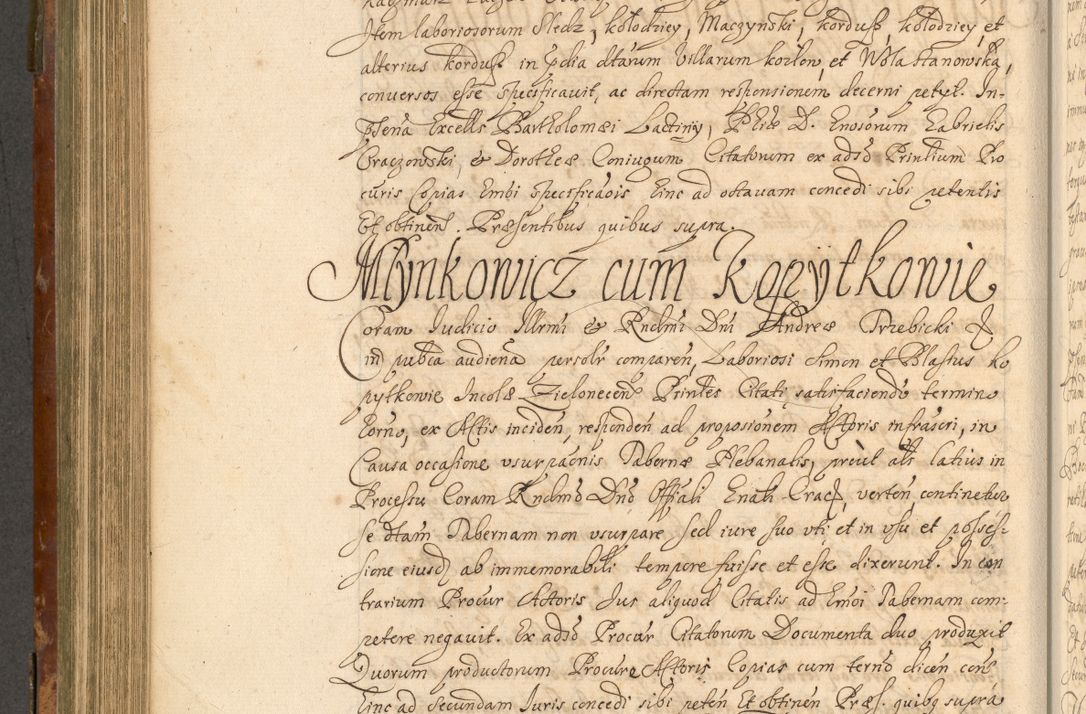 Item laboriosorum Sledz, kołodziey, Maczynski, kordusz, kołodziey, et
alterius kordusz in pdia dtarum Villarum kozłow, et Wola stanowska,
conuersos esse specificauit, ac directam responsionem decerni petyt. In-
psena Excells Bartholomæi Lactiny, Phiæ D. Enosorum Gabrielis
Graczowski, & Dorotheæ Coniugum Citatorum ex adso Printium Pro
curis Copias Embi specificaois hinc ad octauam concedi sibi petentis
Et obtinen. Præsentibus quibus supra.
Młynkowicz cum Kopÿtkowie
Coram Iudicio Illrmi & Rndmi Dni Andreæ Trzebicki
in pubca audiena persolr comparen, Laboriosi Simon et Blasius ko
pytkowie Incolæ Zielonecen Printes Citati satisfaciendo termino
horno, ex Actis inciden, responden ad proposionem Actoris infrascri, in
Causa occasione vsurpaonis Tabernæ Plebanalis, prout als latius in
Processu Coram Rndmo Dno Offali Enali Crac, verten, continetur
se dtam Tabernam non vsurpare sed iure suo vti et in vsu et posses-
sione eiusd ab immemorabili tempore fuisse et esse dixerunt. In con
trarium Procur Actoris Ius aliquod Citatis ad Emoi Tabernam com-
petere negauit. Ex adso Procur Citatorum Documenta duo produxit
Quorum productorum Procure Actoris Copias cum terno dicen cons
hinc ad secundam Iuris concedi sibi peten Et obtinen Præs. quibq supra